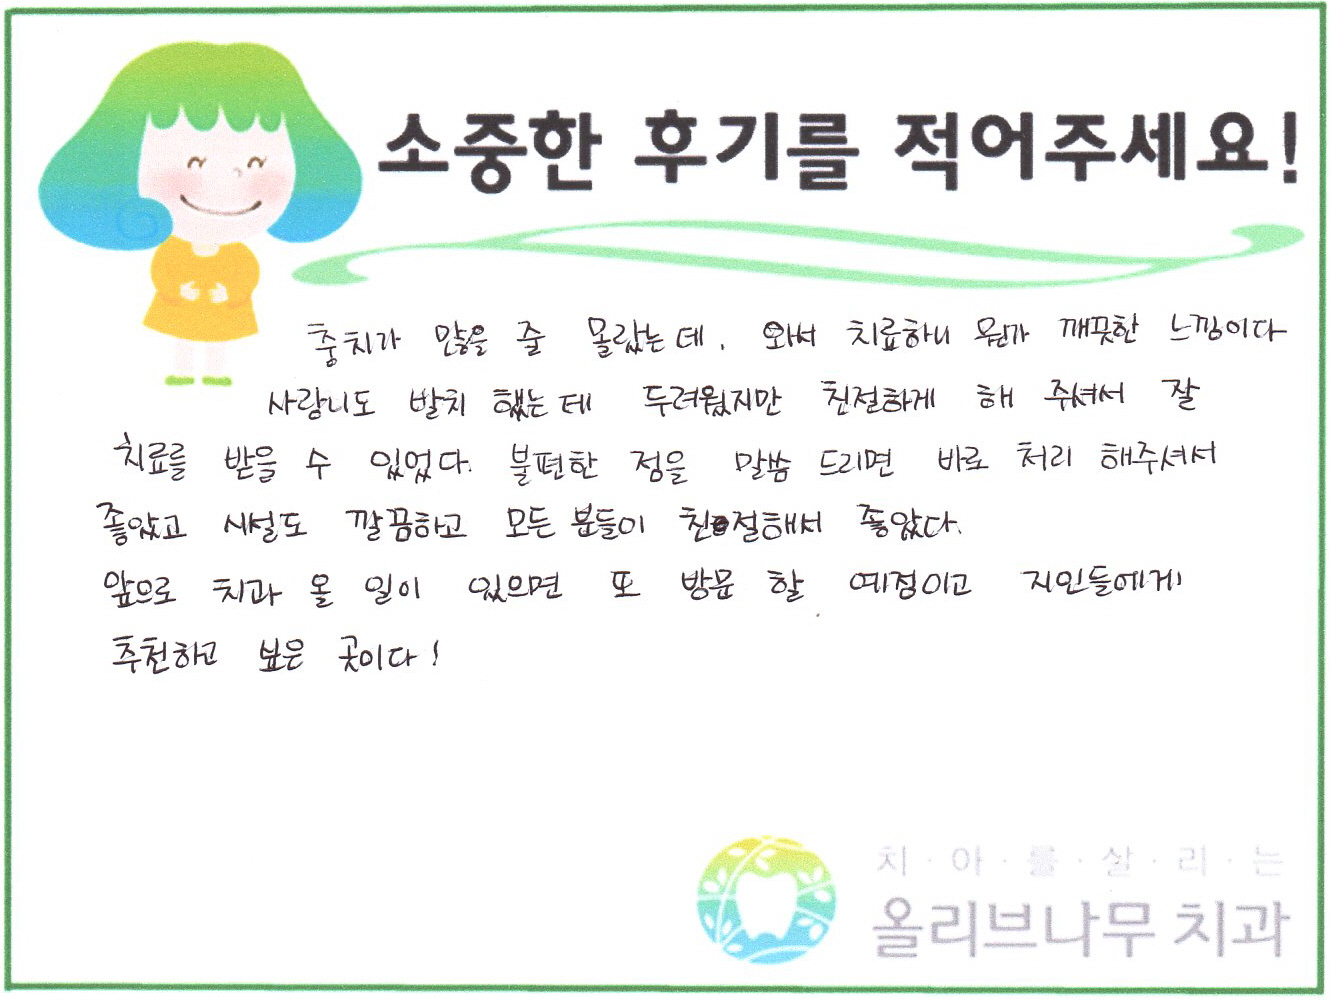 소중한 후기를 적어주세요!
충치가 많을 줄 몰랐는데, 와서 치료하니 뭔가 깨끗한 느낌이다
사랑니도 발치 했는데 두려웠지만 친절하게 해 주셔서 잘
치료를 받을 수 있었다. 불편한 점을 말씀 드리면 바로 처리 해주셔서
좋았고 시설도 깔끔하고 모든 분들이 친절해서 좋았다.
앞으로 치과 올 일이 있으면 또 방문 할 예정이고 지인들에게
추천하고 싶은 곳이다!
치·아·를·살·리·는
올리브나무 치과